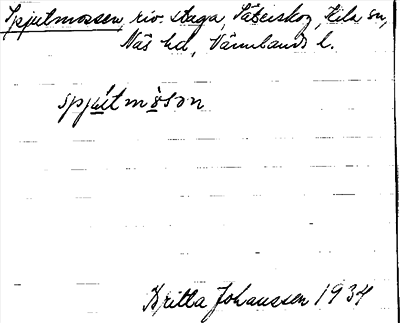 Spjutmossen, riv. staga, Säterskog, Kila sn,
Näs hd, Värmlands l.
spjút mòsơn
Britta Johansson 1934